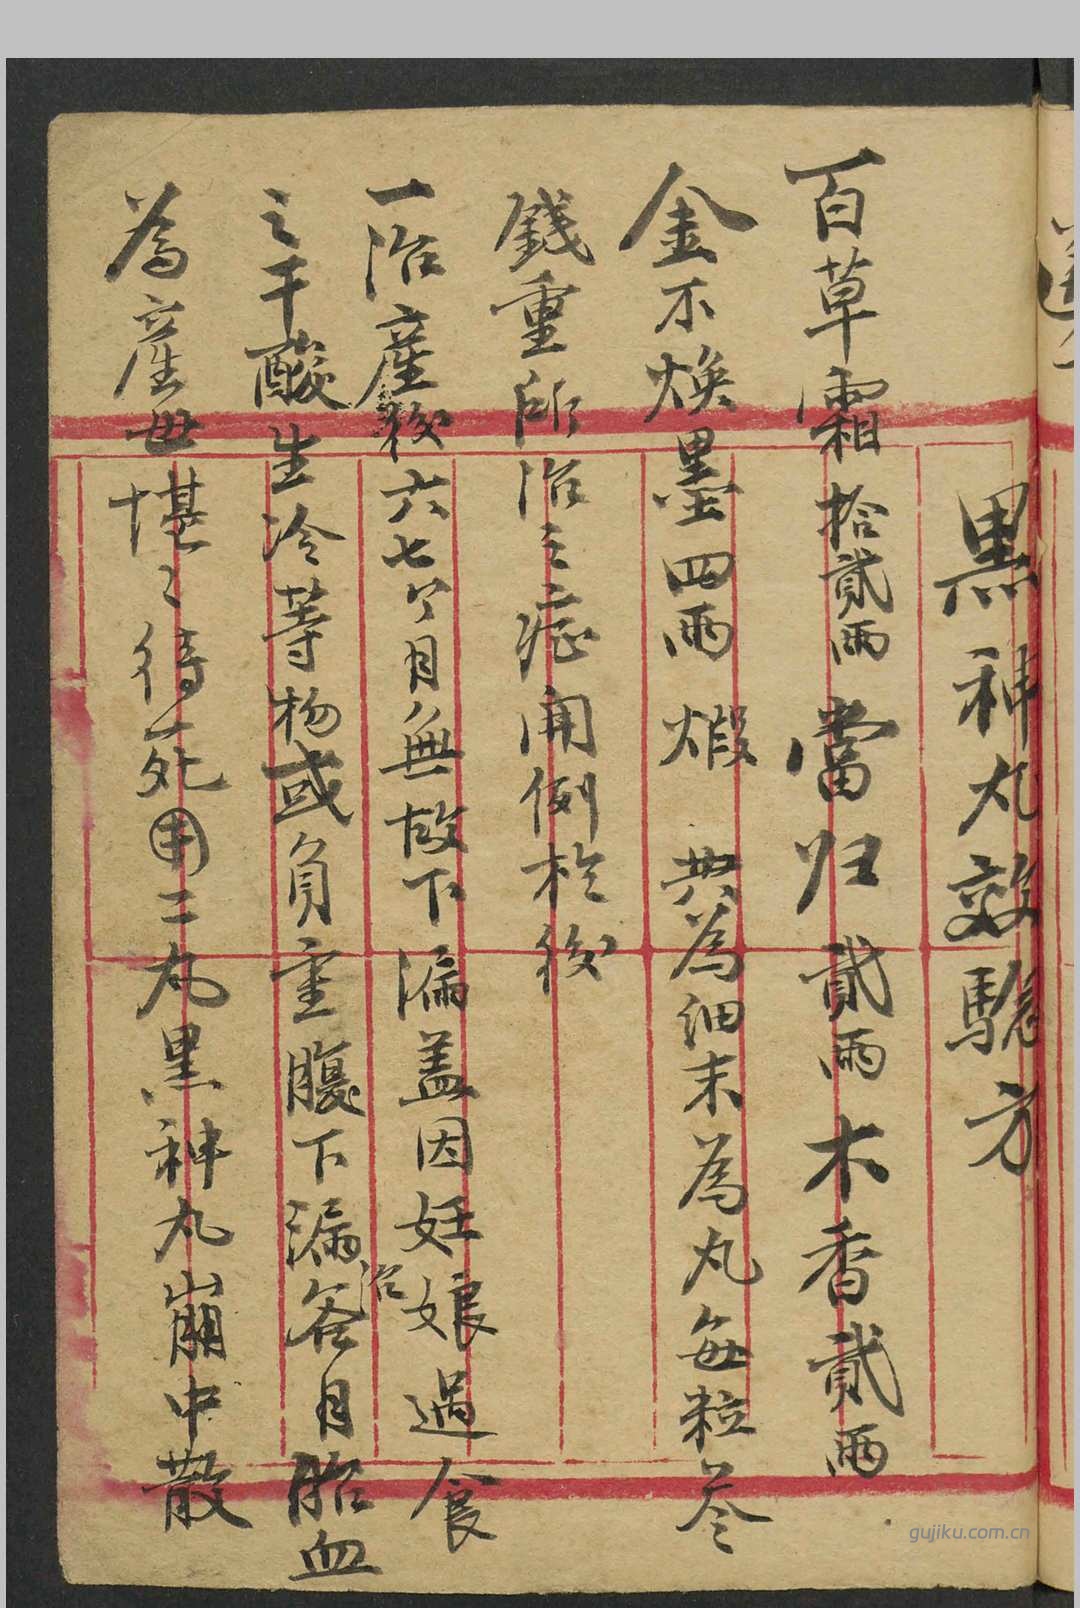 黑神丸效驗方
百草霜拾貳兩 當归貳兩 木香貳兩
金不煥墨四兩 煆 共為細末為丸每粒叁
錢重所治之症開例於後
一治產後六七个月無故下漏盖因妊娘過食
之干酸生冷等物或負重腹下漏 治 各月胎血
為產母堪〻待死用二丸黑神丸崩中散
gujiku.com.cn